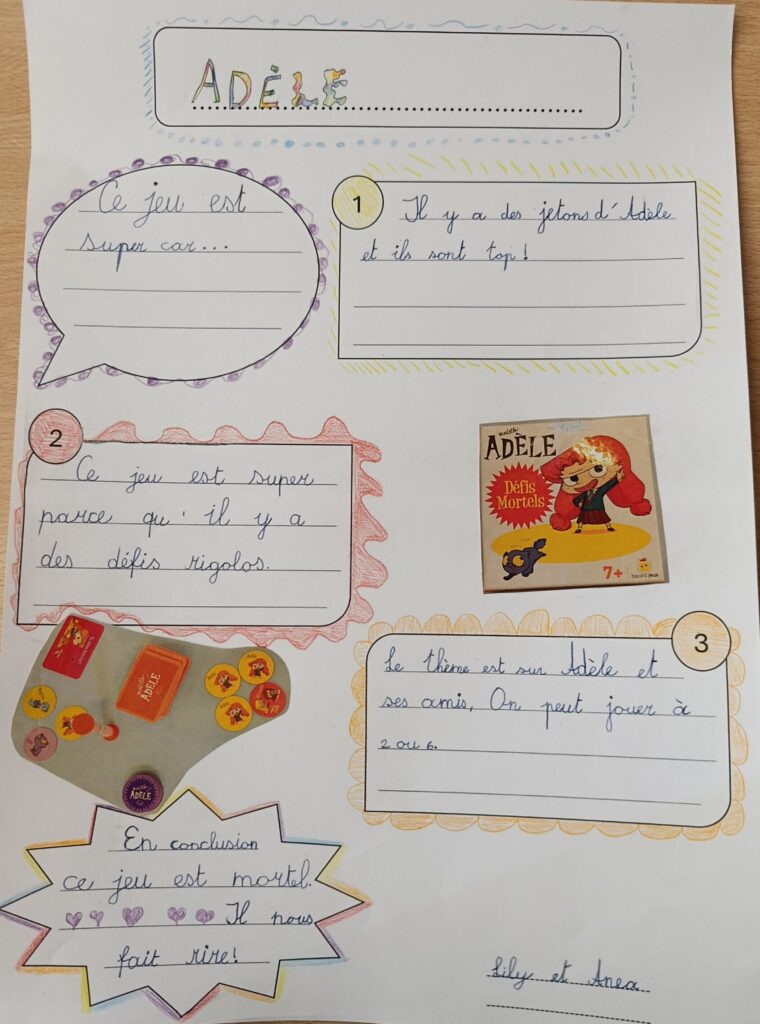 ADÈLE
Ce jeu est
super car...
1
Il y a des jetons d'Adèle
et ils sont top !
2
Ce jeu est super
parce qu'il y a
des défis rigolos.
mortelle
ADÈLE
Défis
Mortels
7+
bayard jeux
3
Le thème est sur Adèle et
ses amis. On peut jouer à
2 ou 6.
mortelle
ADÈLE
ADÈLE
En conclusion
ce jeu est mortel.
Il nous
fait rire!
Lily et Anea